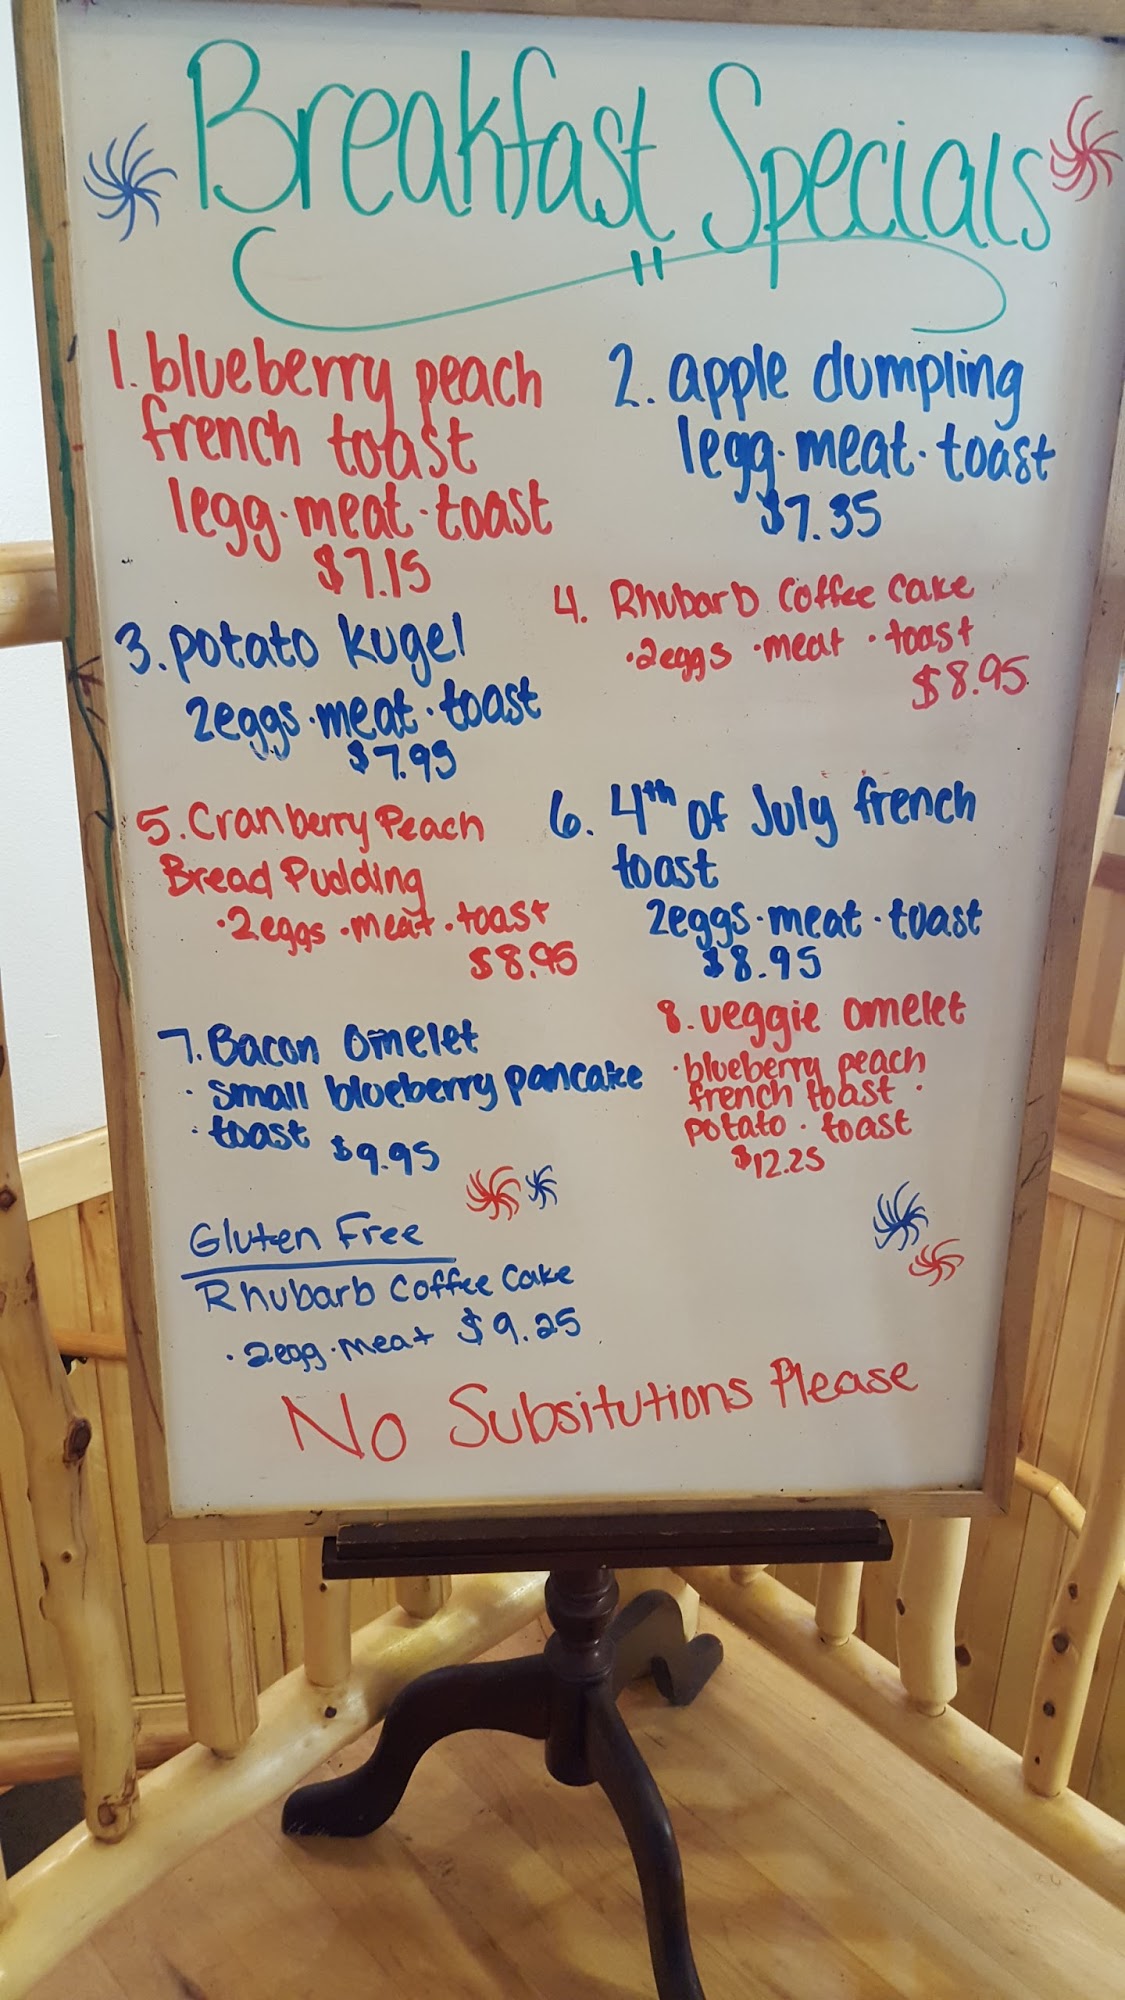 Breakfast Specials
1. blueberry peach
french toast
1egg · meat · toast
$7.15
2. apple dumpling
1egg · meat · toast
$7.35
3. potato kugel
2eggs · meat · toast
$7.95
4. Rhubarb Coffee Cake
· 2eggs · meat · toast
$8.95
5. Cranberry Peach
Bread Pudding
· 2eggs · meat · toast
$8.95
6. 4th of July french
toast
2eggs · meat · toast
$8.95
7. Bacon Omelet
· small blueberry pancake
· toast $9.95
8. veggie omelet
· blueberry peach
french toast ·
potato · toast
$12.25
Gluten Free
Rhubarb Coffee Cake
· 2egg · meat $9.25
No Subsitutions Please